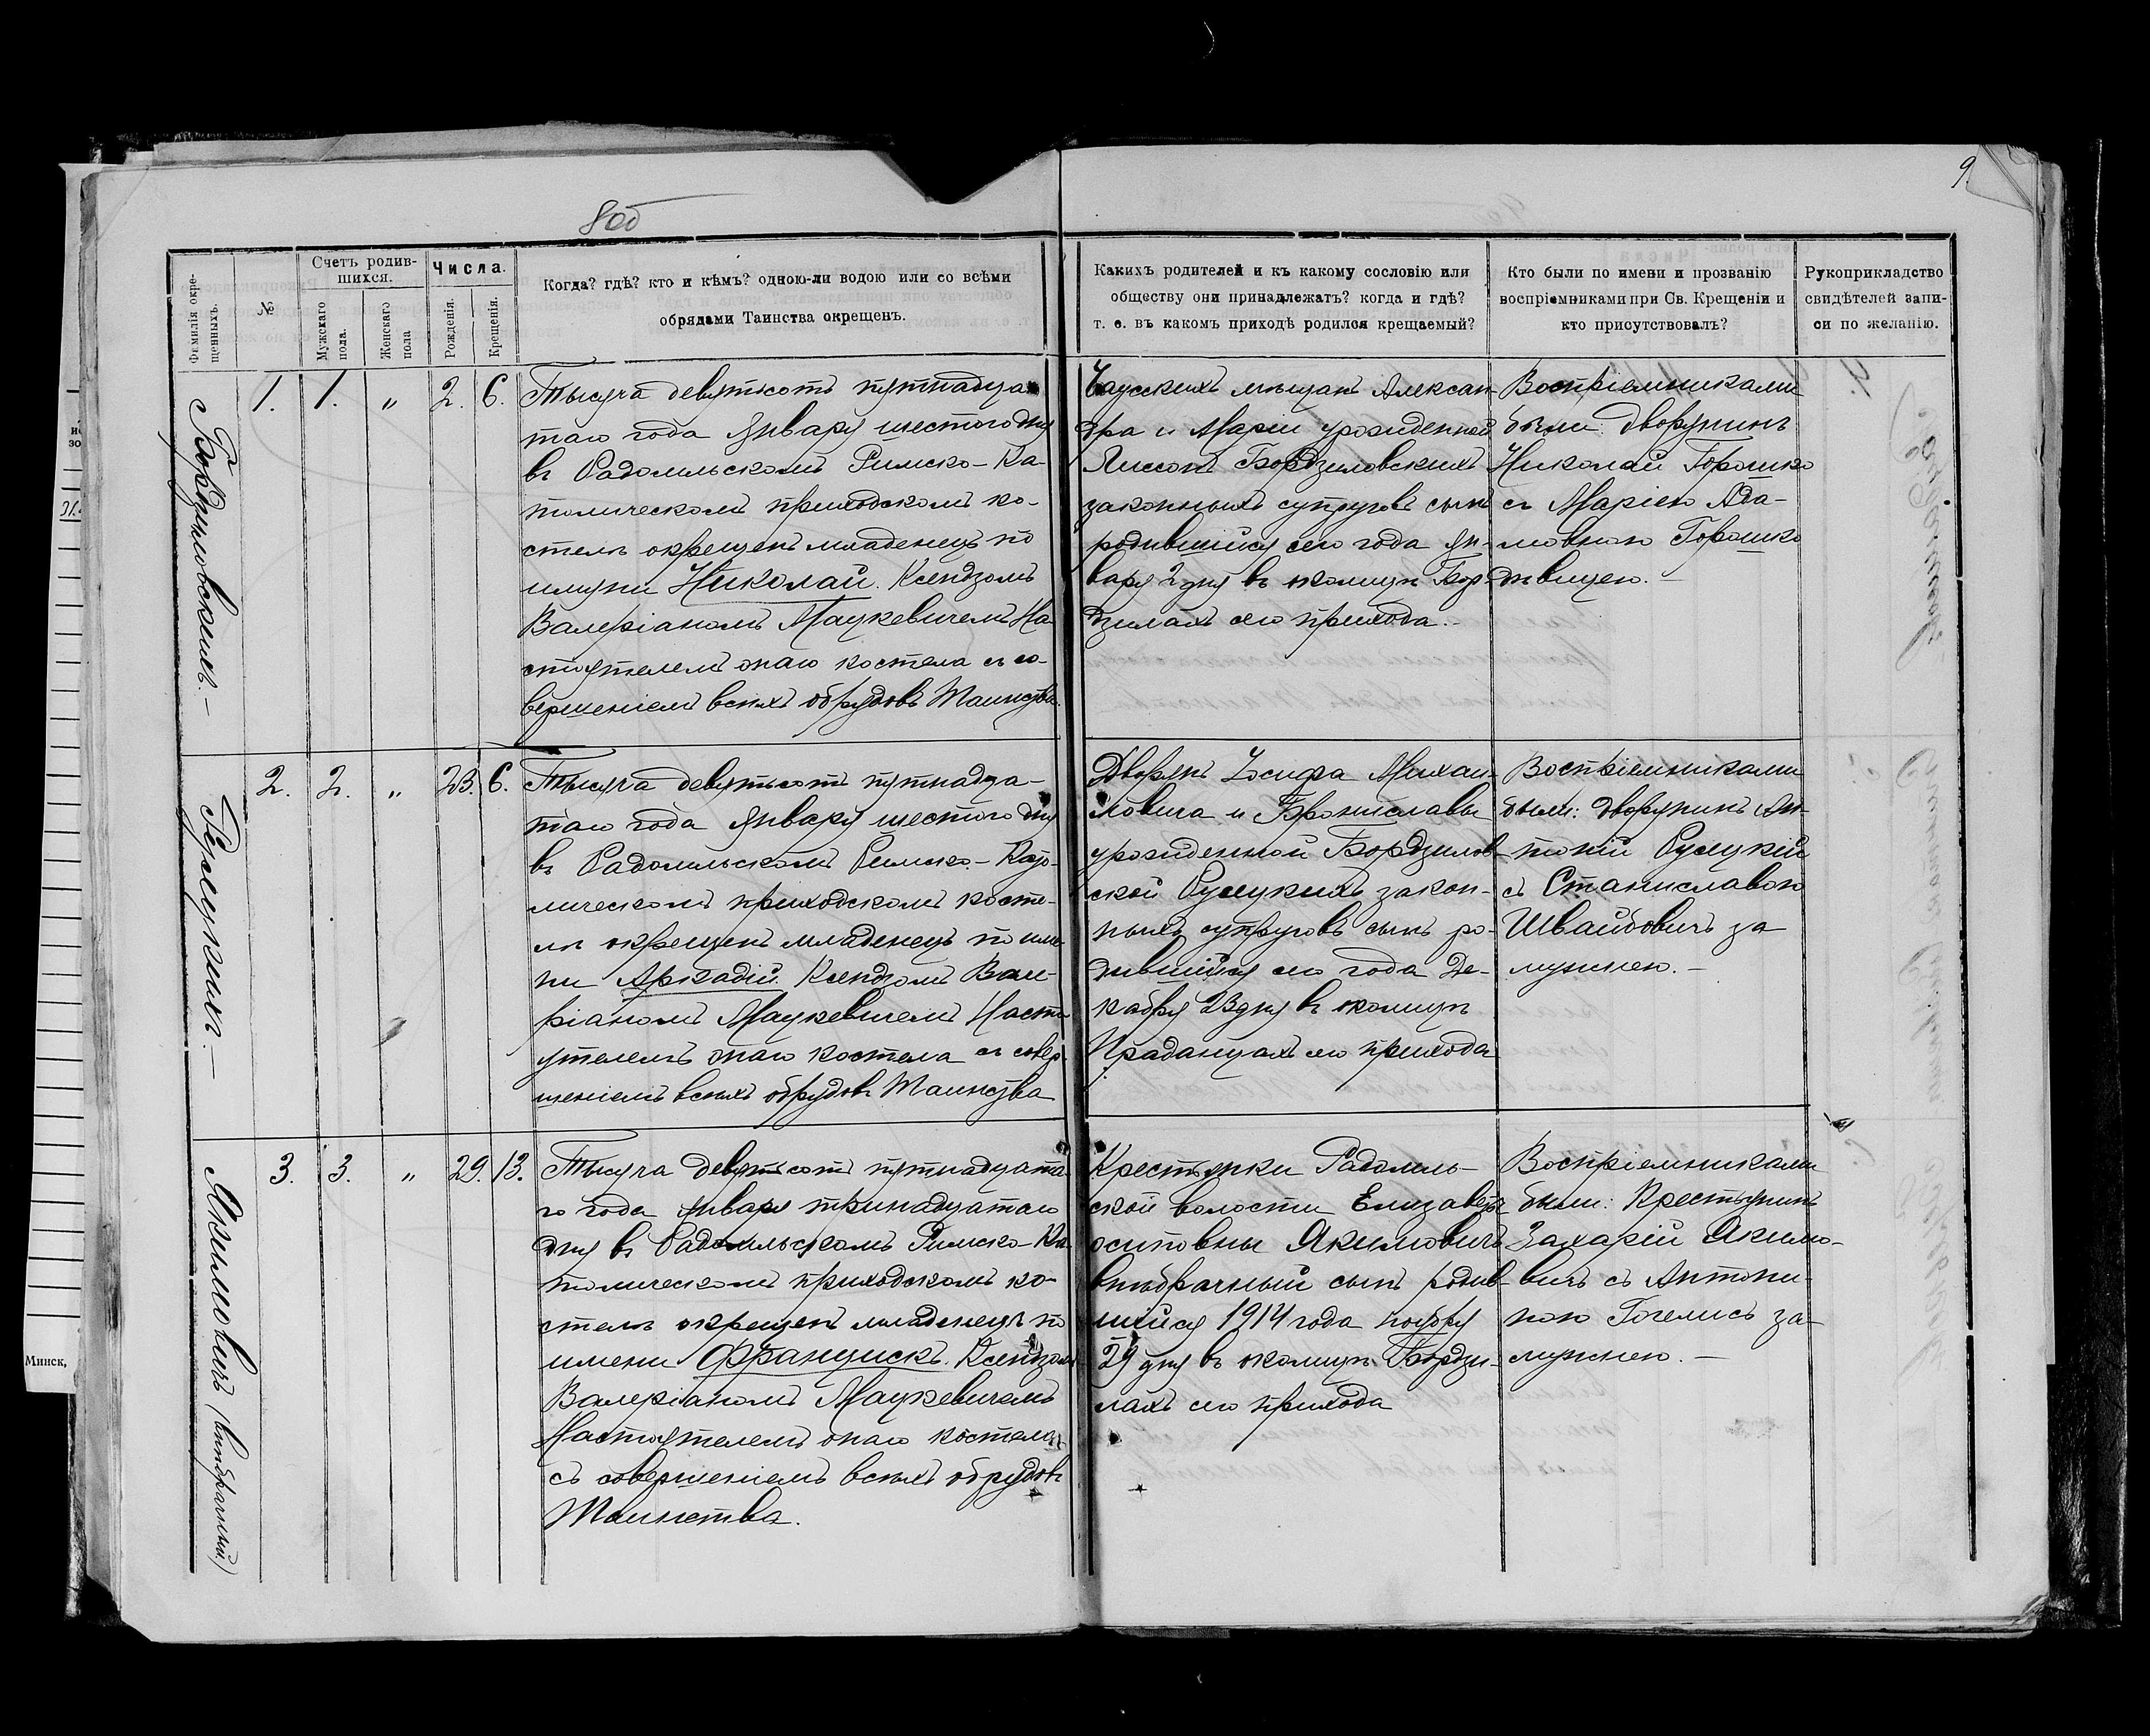 9.
8об
Фамилія окре-
щенныхъ.
№
Счетъ родив-
шихся.
Мужскаго
пола.
Женскаго
пола
Числа.
Рожденія.
Крещенія.
Когда? гдѣ? кто и кѣмъ? одною-ли водою или со всѣми
обрядами Таинства окрещенъ.
Какихъ родителей и къ какому сословію или
обществу они принадлежатъ? когда и гдѣ?
т. е. въ какомъ приходѣ родился крещаемый?
Кто были по имени и прозванію
воспріемниками при Св. Крещеніи и
кто присутствовалъ?
Рукоприкладство
свидѣтелей запи-
си по желанію.
1. 1. „ 2. 6.
Тысяча девятьсотъ пятнадца
таго года Января шестого дня
въ Радомльскомъ Римско-Ка-
толическомъ приходскомъ ко-
стелѣ окрещенъ младенецъ по
имяни Николай. Ксендзомъ
Валеріаномъ Мацкевичемъ На
стоятелемъ онаго костела съ со-
вершеніемъ всѣхъ обрядовъ Таинства.
Чаусскихъ мѣщанъ Алексан-
дра и Маріи урожденной
Бордзиловскихъ
законныхъ супруговъ сынъ
родившійся сего года Ян-
варя 2 дня въ околицѣ Бор-
дзилахъ сего прихода.-
Воспріемниками
были: дворянинъ
Николай Горошко
съ Маріею Ада-
мовною Горошко
дѣвицею.-
2. 2. „ 23. 6.
Тысяча девятьсотъ пятнадца-
таго года Января шестого дня
въ Радомльскомъ Римско-Като-
лическомъ приходскомъ косте-
лѣ окрещенъ младенецъ по име-
ни Аркадій. Ксендзомъ Вале-
ріаномъ Мацкевичемъ Насто
ятелемъ онаго костела съ совер-
шеніемъ всѣхъ обрядовъ Таинства
Дворянъ Іосифа Михаи-
ловича и Брониславы
урожденной Бордзилов-
ской закон-
ныхъ супруговъ сынъ ро-
дившійся сего года Де-
кабря 23 дня въ околицѣ
сего прихода
Воспріемниками
были: дворянинъ Ан-
тоній
съ Станиславою
Швайбовичъ за
мужнею.-
3. 3. „ 29. 13.
Тысяча девятьсотъ пятнадцата-
го года января тринадцатаго
дня въ Радомльскомъ Римско-Ка-
толическомъ приходскомъ ко-
стелѣ окрещенъ младенецъ по
имени Францискъ. Ксендзомъ
Валеріаномъ Мацкевичемъ
Настоятелемъ онаго костела
съ совершеніемъ всѣхъ обрядовъ
Таинства.
Крестьянки Радомль-
ской волости Елизаветы
осиповны Якимовичъ
внѣбрачный сынъ родив-
шійся 1914 года ноября
29 дня въ околицѣ Бордзи-
лахъ сего прихода
Воспріемниками
были: Крестьянинъ
Захарій Якимо-
вичъ съ Антони-
ною за-
мужнею.-
Бордзиловскихъ.-
Якимовичъ (внѣбрачный)
Минск,